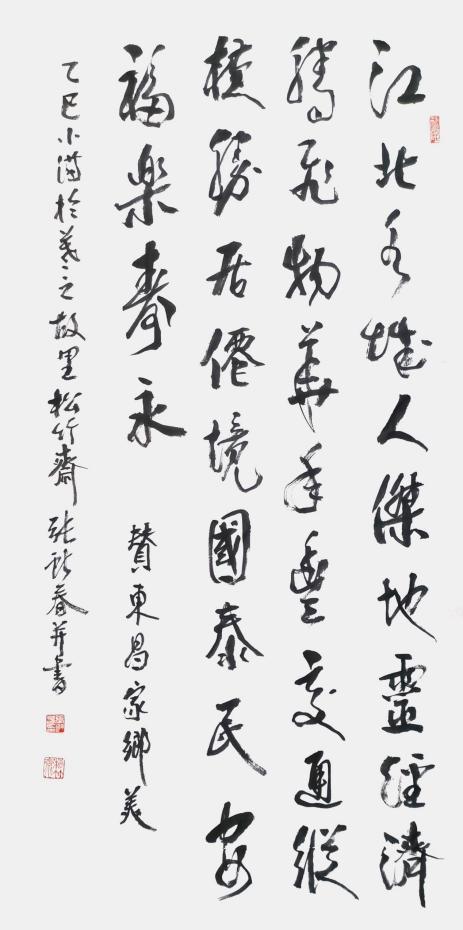 江北水城人傑地靈經濟
騰飛物華年豐交通縱
橫勝居僊境國泰民安
福楽壽永
贊東昌家鄉美
乙巳小滿於羲之故里松竹齋張春并書